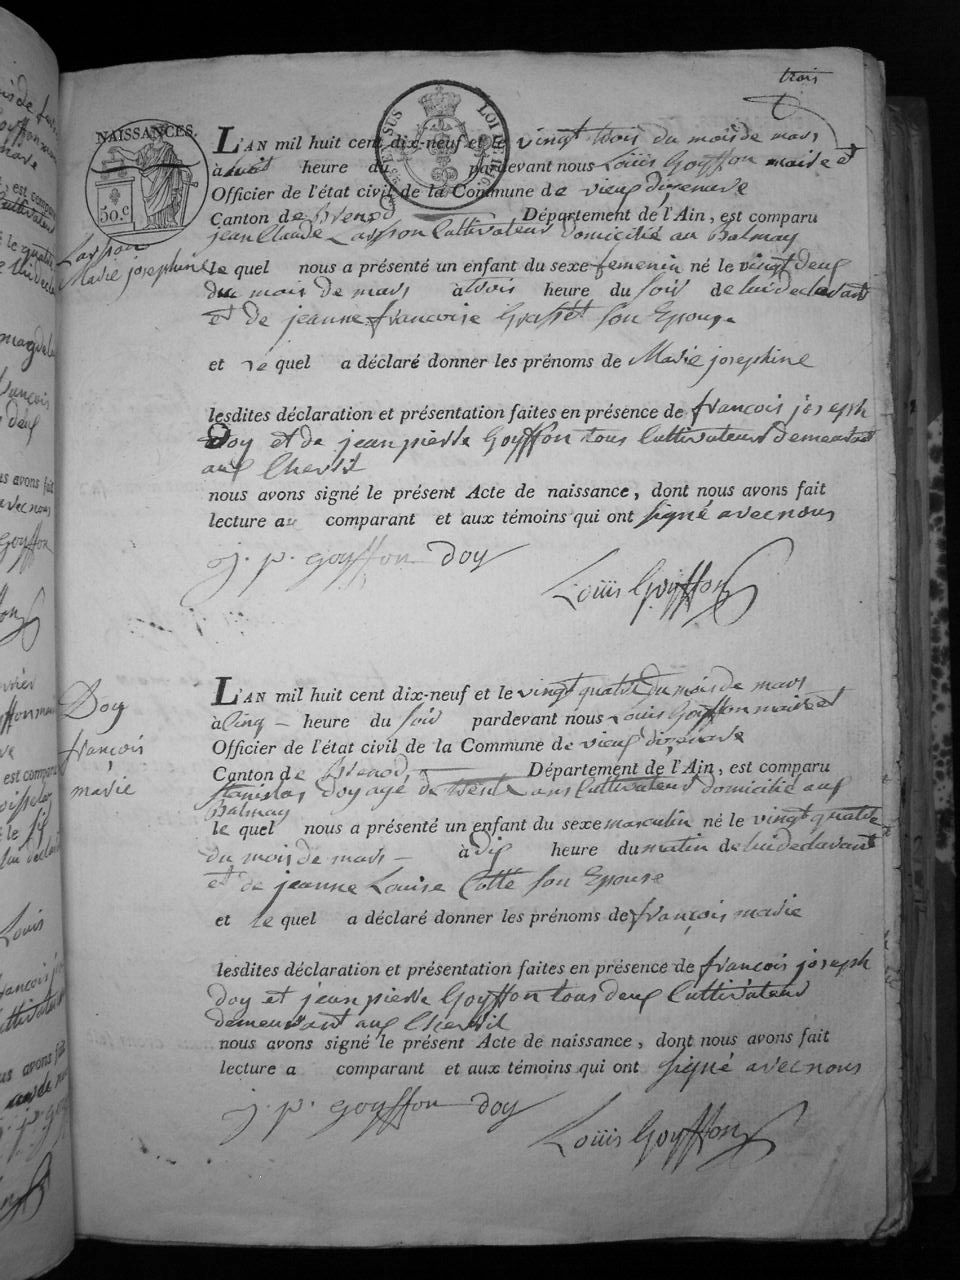 trois
NAISSANCES.
50 c
LOI DE 1816
L'AN mil huit cent dix-neuf et le vingt trois du mois de mars
à huit heure du pardevant nous Louis Goyffon maire et
Officier de l'état civil de la Commune de vieux dizenave
Canton de Brenod Département de l'Ain, est comparu
jean Claude Lasson Cultivateur domicilié au Balmay
Lasson
Marie josephine
le quel nous a présenté un enfant du sexe femenin né le vingt deux
du mois de mars à trois heure du soir de lui declarant
et de jeanne francoise Grasset son Epouse
et le quel a déclaré donner les prénoms de Marie josephine
lesdites déclaration et présentation faites en présence de francois joseph
Doy et de jean pierre Goyffon tous Cultivateurs demeurant
aux Chevril
nous avons signé le présent Acte de naissance, dont nous avons fait
lecture au comparant et aux témoins qui ont signé avec nous
j. p. goyffon doy
Louis Goyffon
Doy
françois
marie
L'AN mil huit cent dix-neuf et le vingt quatre du mois de mars
à Cinq heure du soir pardevant nous Louis Goyffon maire et
Officier de l'état civil de la Commune de vieux dizenave
Canton de Brenod Département de l'Ain, est comparu
Stanislas Doy agé de trente ans Cultivateur domicilié aux
Balmay
le quel nous a présenté un enfant du sexe masculin né le vingt quatre
du mois de mars à dix heure du matin de lui declarant
et de jeanne Louise Cotte son Epouse
et le quel a déclaré donner les prénoms de françois marie
lesdites déclaration et présentation faites en présence de francois joseph
Doy et jean pierre Goyffon tous deux Cultivateurs
demeurant aux Chevril
nous avons signé le présent Acte de naissance, dont nous avons fait
lecture a comparant et aux témoins qui ont signé avec nous
j. p. goyffon doy
Louis Goyffon